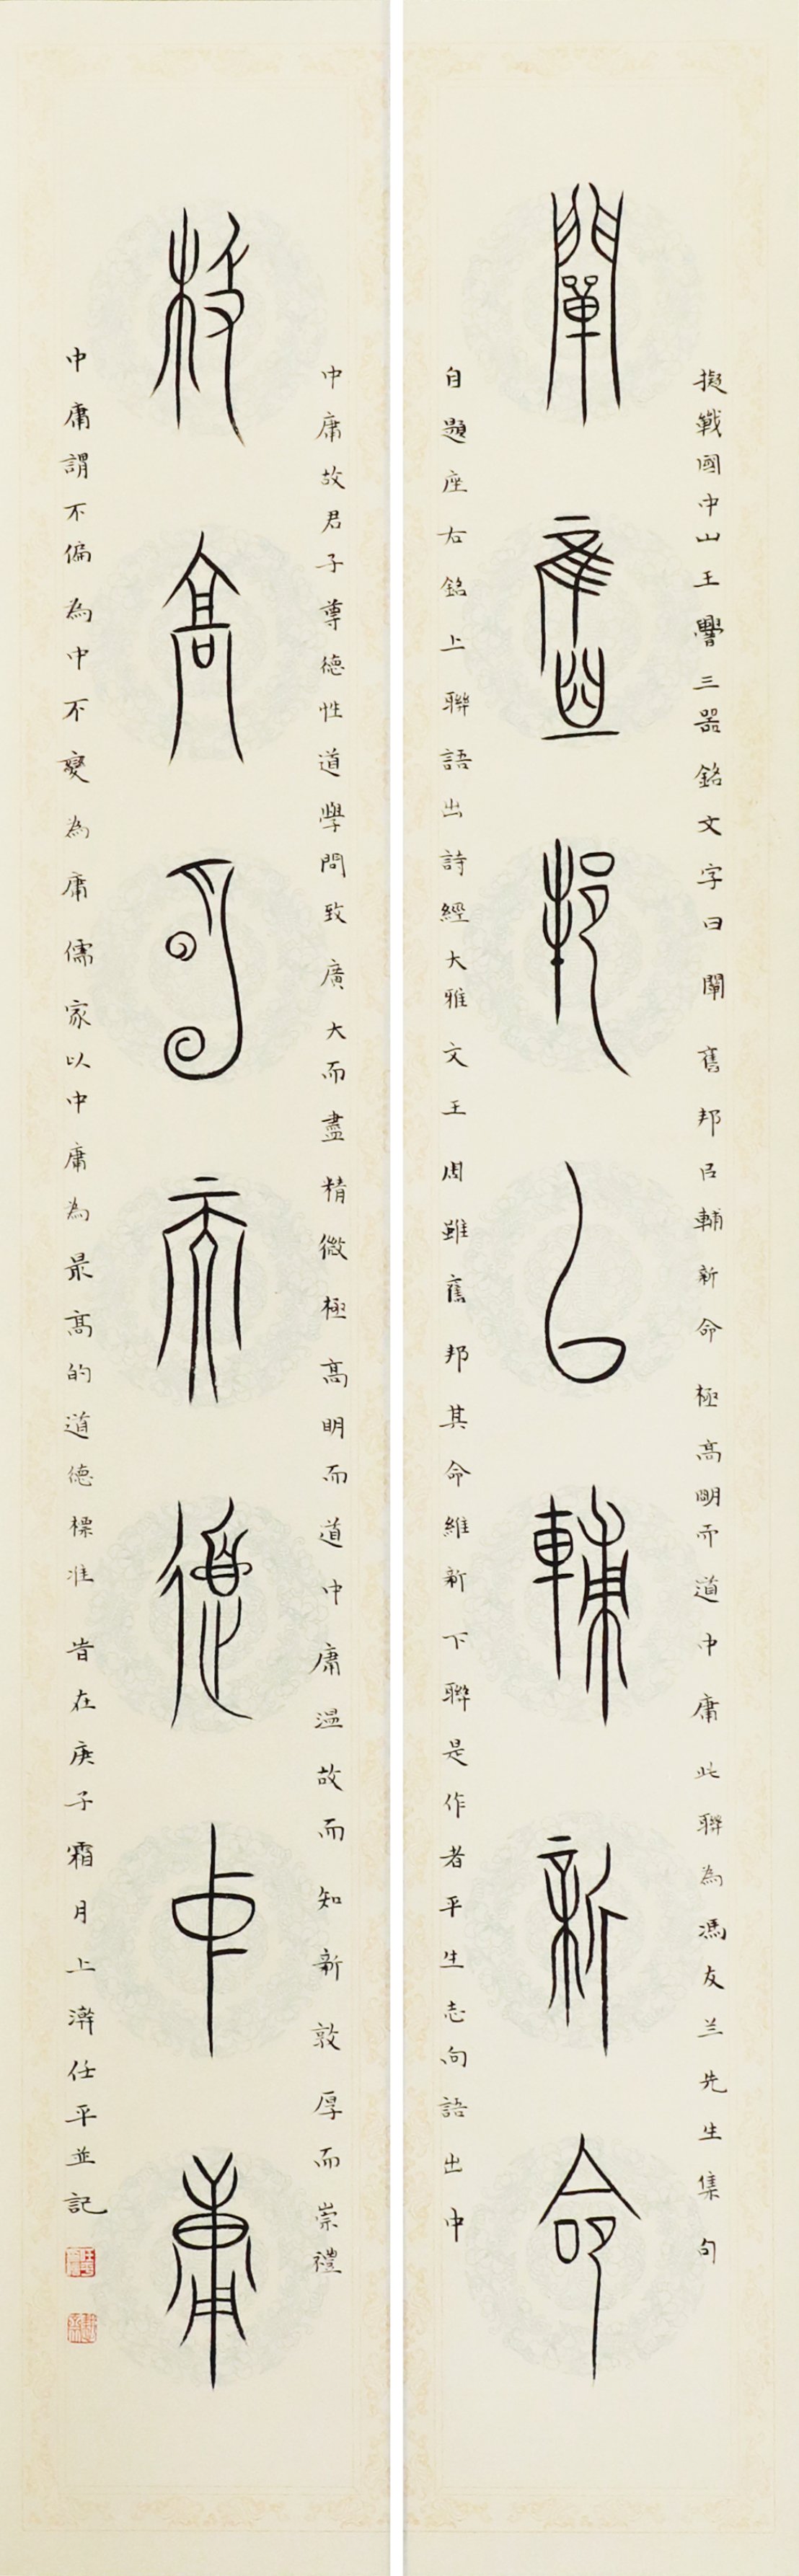 擬戰國中山王三器銘文字曰闡舊邦㠯輔新命極高明而道中庸此聯為馮友兰先生集句
闡舊邦㠯輔新命
自題座右銘上聯語出詩經大雅文王周雖舊邦其命維新下聯是作者平生志向語出中
中庸故君子尊德性道學問致廣大而盡精微極高明而道中庸温故而知新敦厚而崇禮
極高明而道中庸
中庸謂不偏為中不變為庸儒家以中庸為最高的道德標准 旹在庚子霜月上澣任平並記